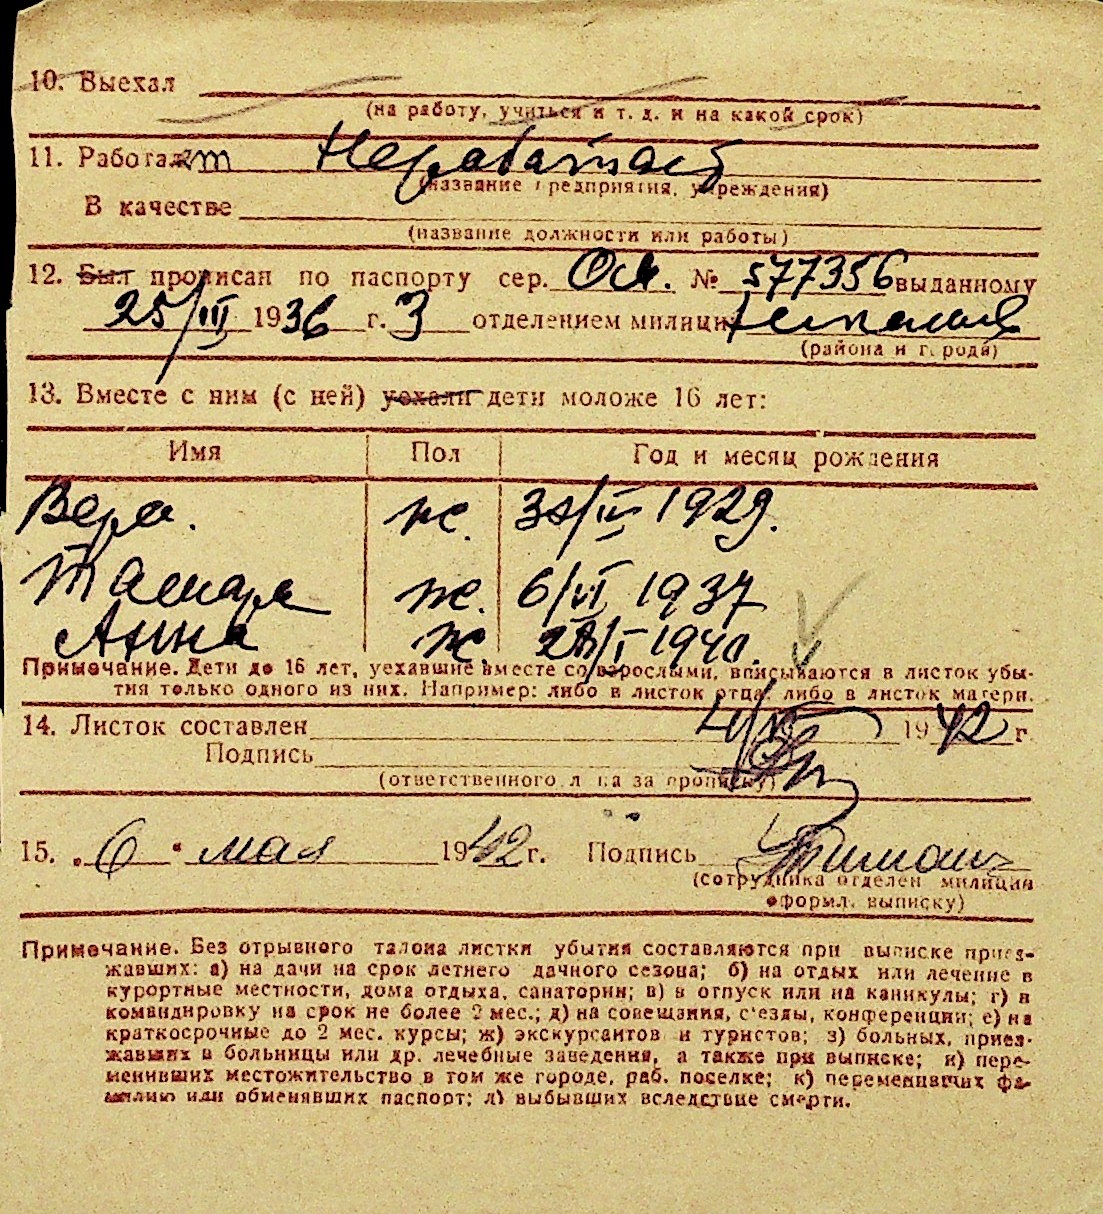 10. Выехал
(на работу, учиться и т. д. и на какой срок)
11. Работает Не работает
(название предприятия, учреждения)
В качестве
(название должности или работы)
12. Был прописан по паспорту сер. № 577356 выданному
25/III 1936 г. 3 отделением милиции
(района и города)
13. Вместе с ним (с ней) уехали дети моложе 16 лет:
Имя Пол Год и месяц рождения
Вера. ж. 1929.
Тамара ж. 6/VI 1937
Анна ж 1940.
Примечание. Дети до 16 лет, уехавшие вместе со взрослыми, вписываются в листок убы-
тия только одного из них. Например: либо в листок отца, либо в листок матери.
14. Листок составлен 1942 г.
Подпись
(ответственного лица за прописку)
15. „6“ мая 1942 г. Подпись
(сотрудника отделен. милиции
оформл. выписку)
Примечание. Без отрывного талона листки убытия составляются при выписке приез-
жавших: а) на дачи на срок летнего дачного сезона; б) на отдых или лечение в
курортные местности, дома отдыха, санатории; в) в отпуск или на каникулы; г) в
командировку на срок не более 2 мес.; д) на совещания, с'езды, конференции; е) на
краткосрочные до 2 мес. курсы; ж) экскурсантов и туристов; з) больных, приез-
жавших в больницы или др. лечебные заведения, а также при выписке; и) пере-
менивших местожительство в том же городе, раб. поселке; к) переменивших фа-
милию или обменявших паспорт; л) выбывших вследствие смерти.